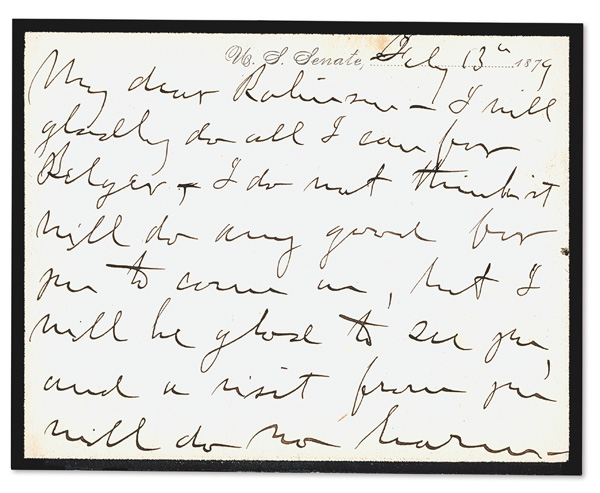 U. S. Senate, Feby 13th 1879
My dear Robinson – I will
gladly do all I can for
Belger – I do not think it
will do any good for
you to come on, but I
will be glad to see you,
and a visit from you
will do no harm –